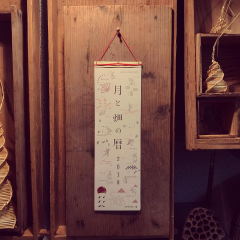 月と畑の暦2018